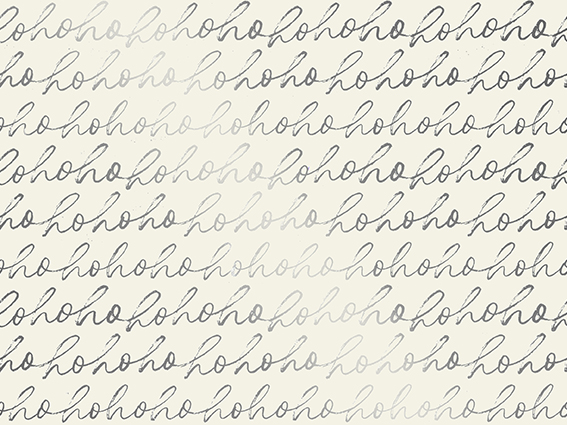 hohohohohohohohohohohoho
hohohohohohohohohohohoho
ohohohohohohohohohohoho
hohohohohohohohohohohoho
hohohohohohohohohohohoho
ohohohohohohohohohohoho
hohohohohohohohohohohoho
hohohohohohohohohohohoho
ohohohohohohohohohohoho